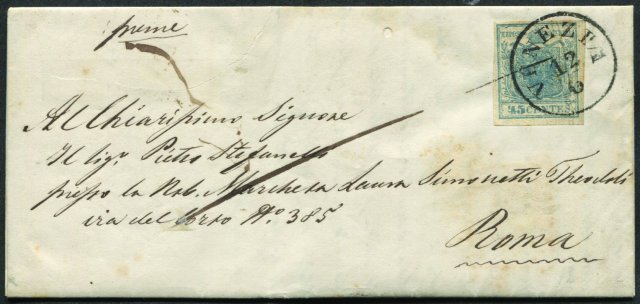 preme
VENEZIA
12
6
45 CENTES
Al Chiarissimo Signore
Il Sigr. Pietro Stefanelli
presso la Nob. Marchesa Laura Simonetti Theodoli
via del Corso No. 385
Roma